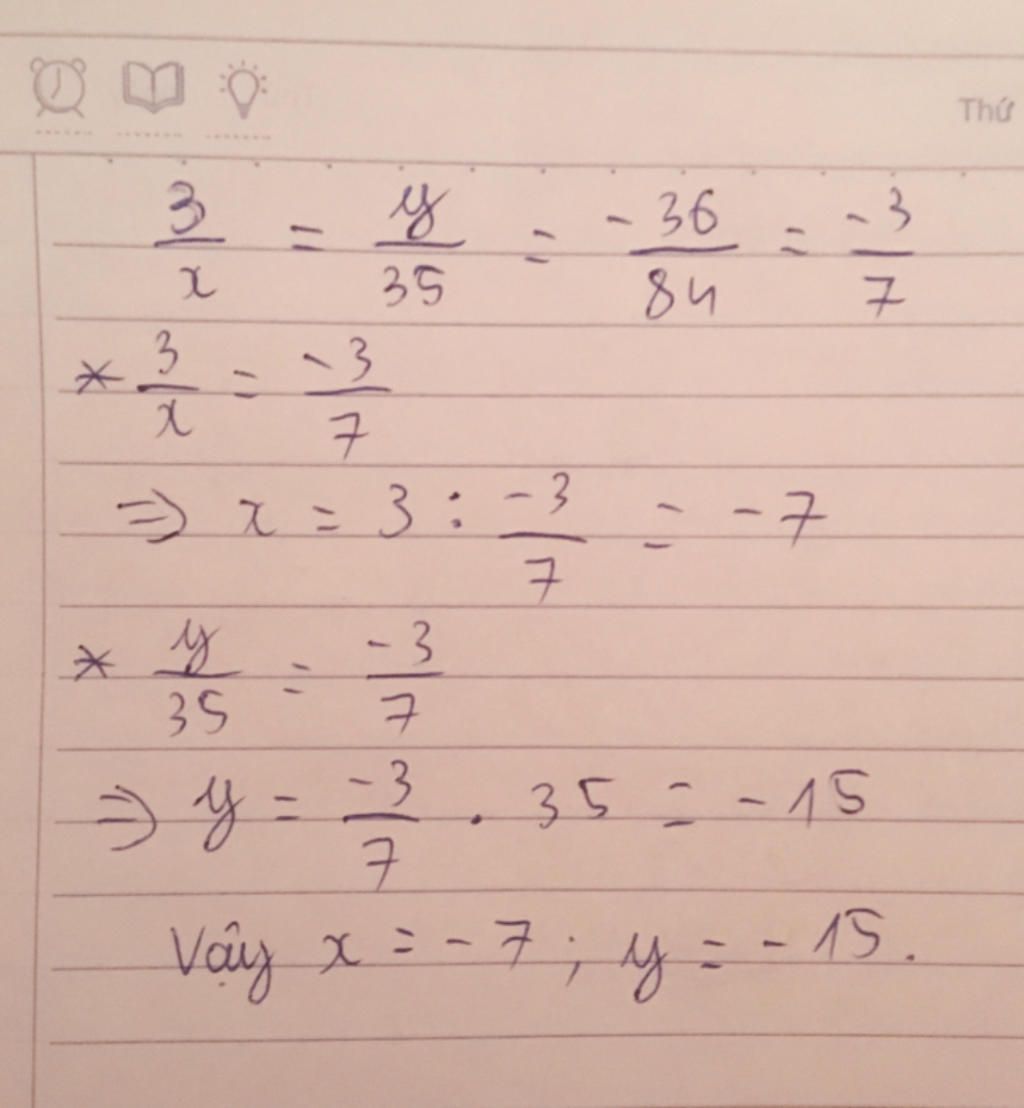 Thứ
3/x = y/35 = -36/84 = -3/7
* 3/x = -3/7
⇒ x = 3 : -3/7 = -7
* y/35 = -3/7
⇒ y = -3/7 . 35 = -15
Vậy x = -7 ; y = -15.